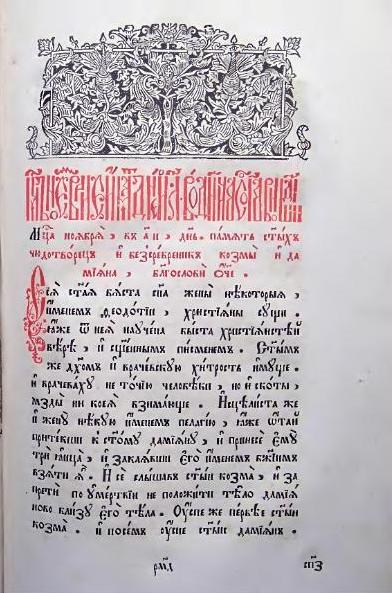 Мц҃а ноября , въ а҃ и , днь . память ст҃ыхъ
чюдотворецъ и безсребренникъ козмы и да
мїяна , благослови ѻ҃че .
Сїя ст҃ая бяста сн҃а жены нѣкоторыя ,
именемъ ѳеодотїи , христїяны сущи .
юже ѿ нея научена быста христїянстей
вѣре , и сщ҃еннымъ писменемъ . Ст҃ымъ
же дх҃омъ и врачевскую хитрость имуще .
и врачеваху не точїю человѣки , но и скоты ,
мзды ни коея взимающе . Исцелиста же
и жену нѣкую именемъ пелагїю , яже ѿтай
притекши к ст҃ому дамїяну , и принесе ему
три яица , и заклявши его именемъ бж҃їимъ
взяти я . И се слышавъ ст҃ыи козма , и за
прети по умертвїи не положити тѣло дамїя
ново близу его тѣла . Оуспе же первѣе ст҃ыи
козма . и посемъ оуспе ст҃ыи дамїянъ .
сп҃з